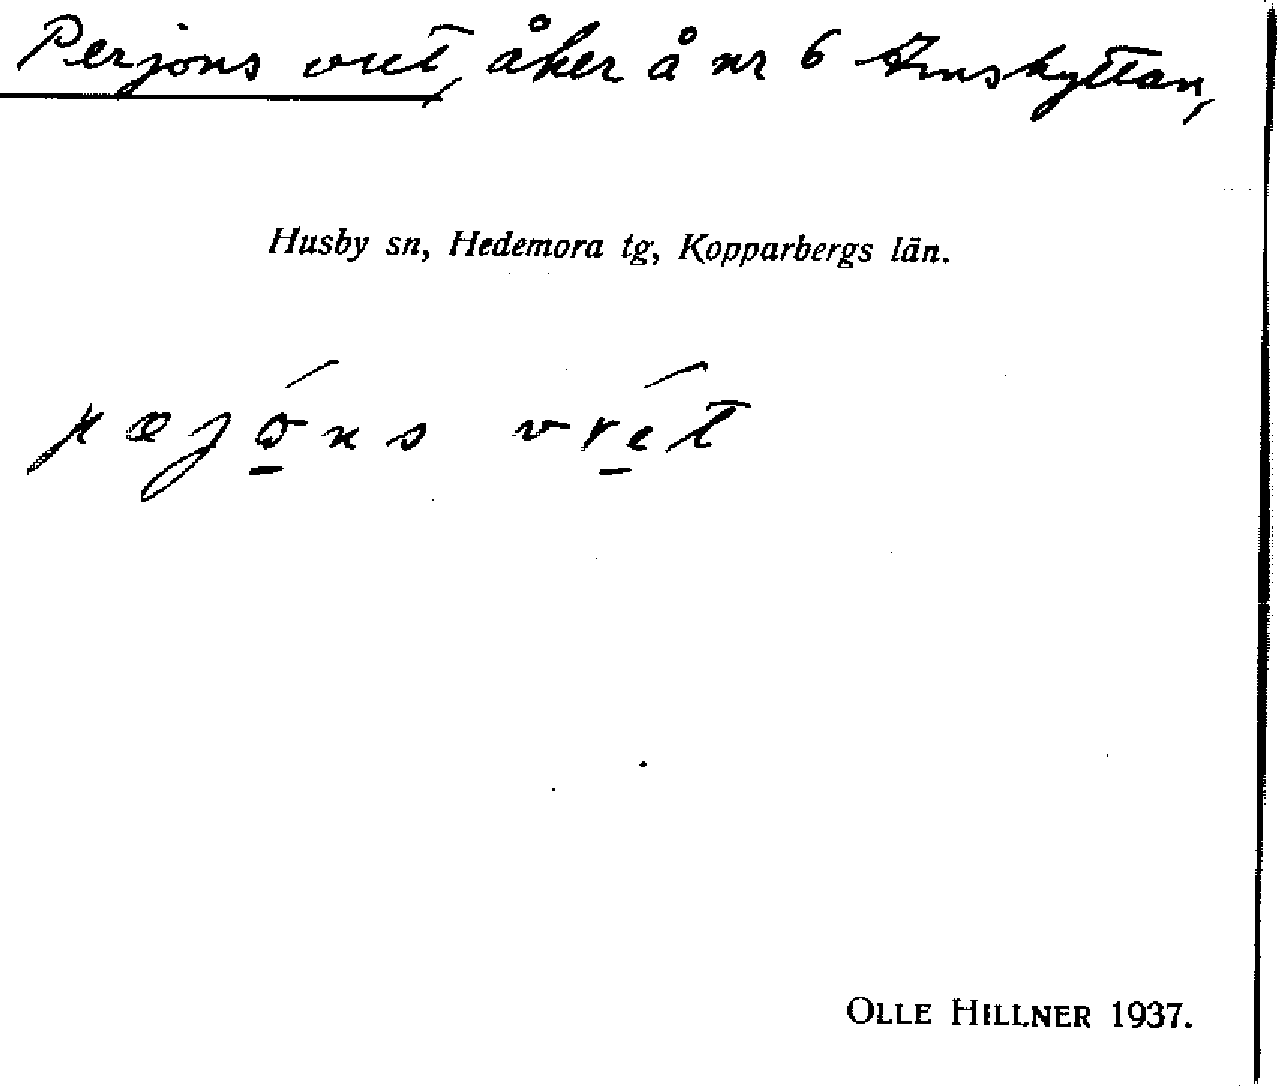 Perjons vret, åker å nr 6 Amshyttan,
Husby sn, Hedemora tg, Kopparbergs län.
pæjóns vrét
OLLE HILLNER 1937.